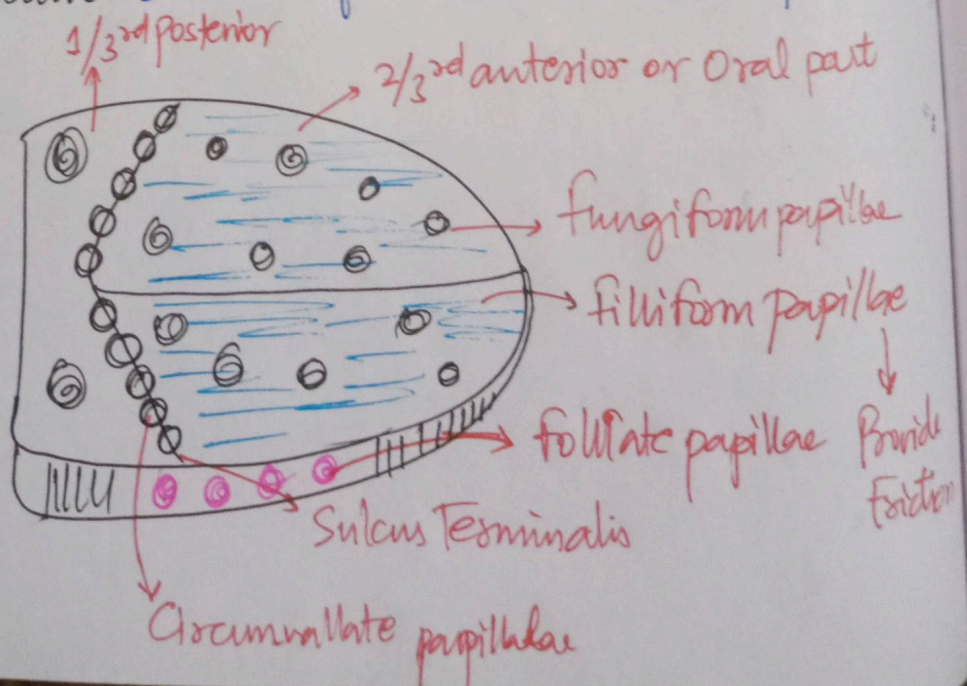 1/3rd Posterior
2/3rd anterior or Oral part
fungiform papillae
filliform papillae
Provide
friction
folliate papillae
Sulcus Terminalis
Circumvallate papillalae